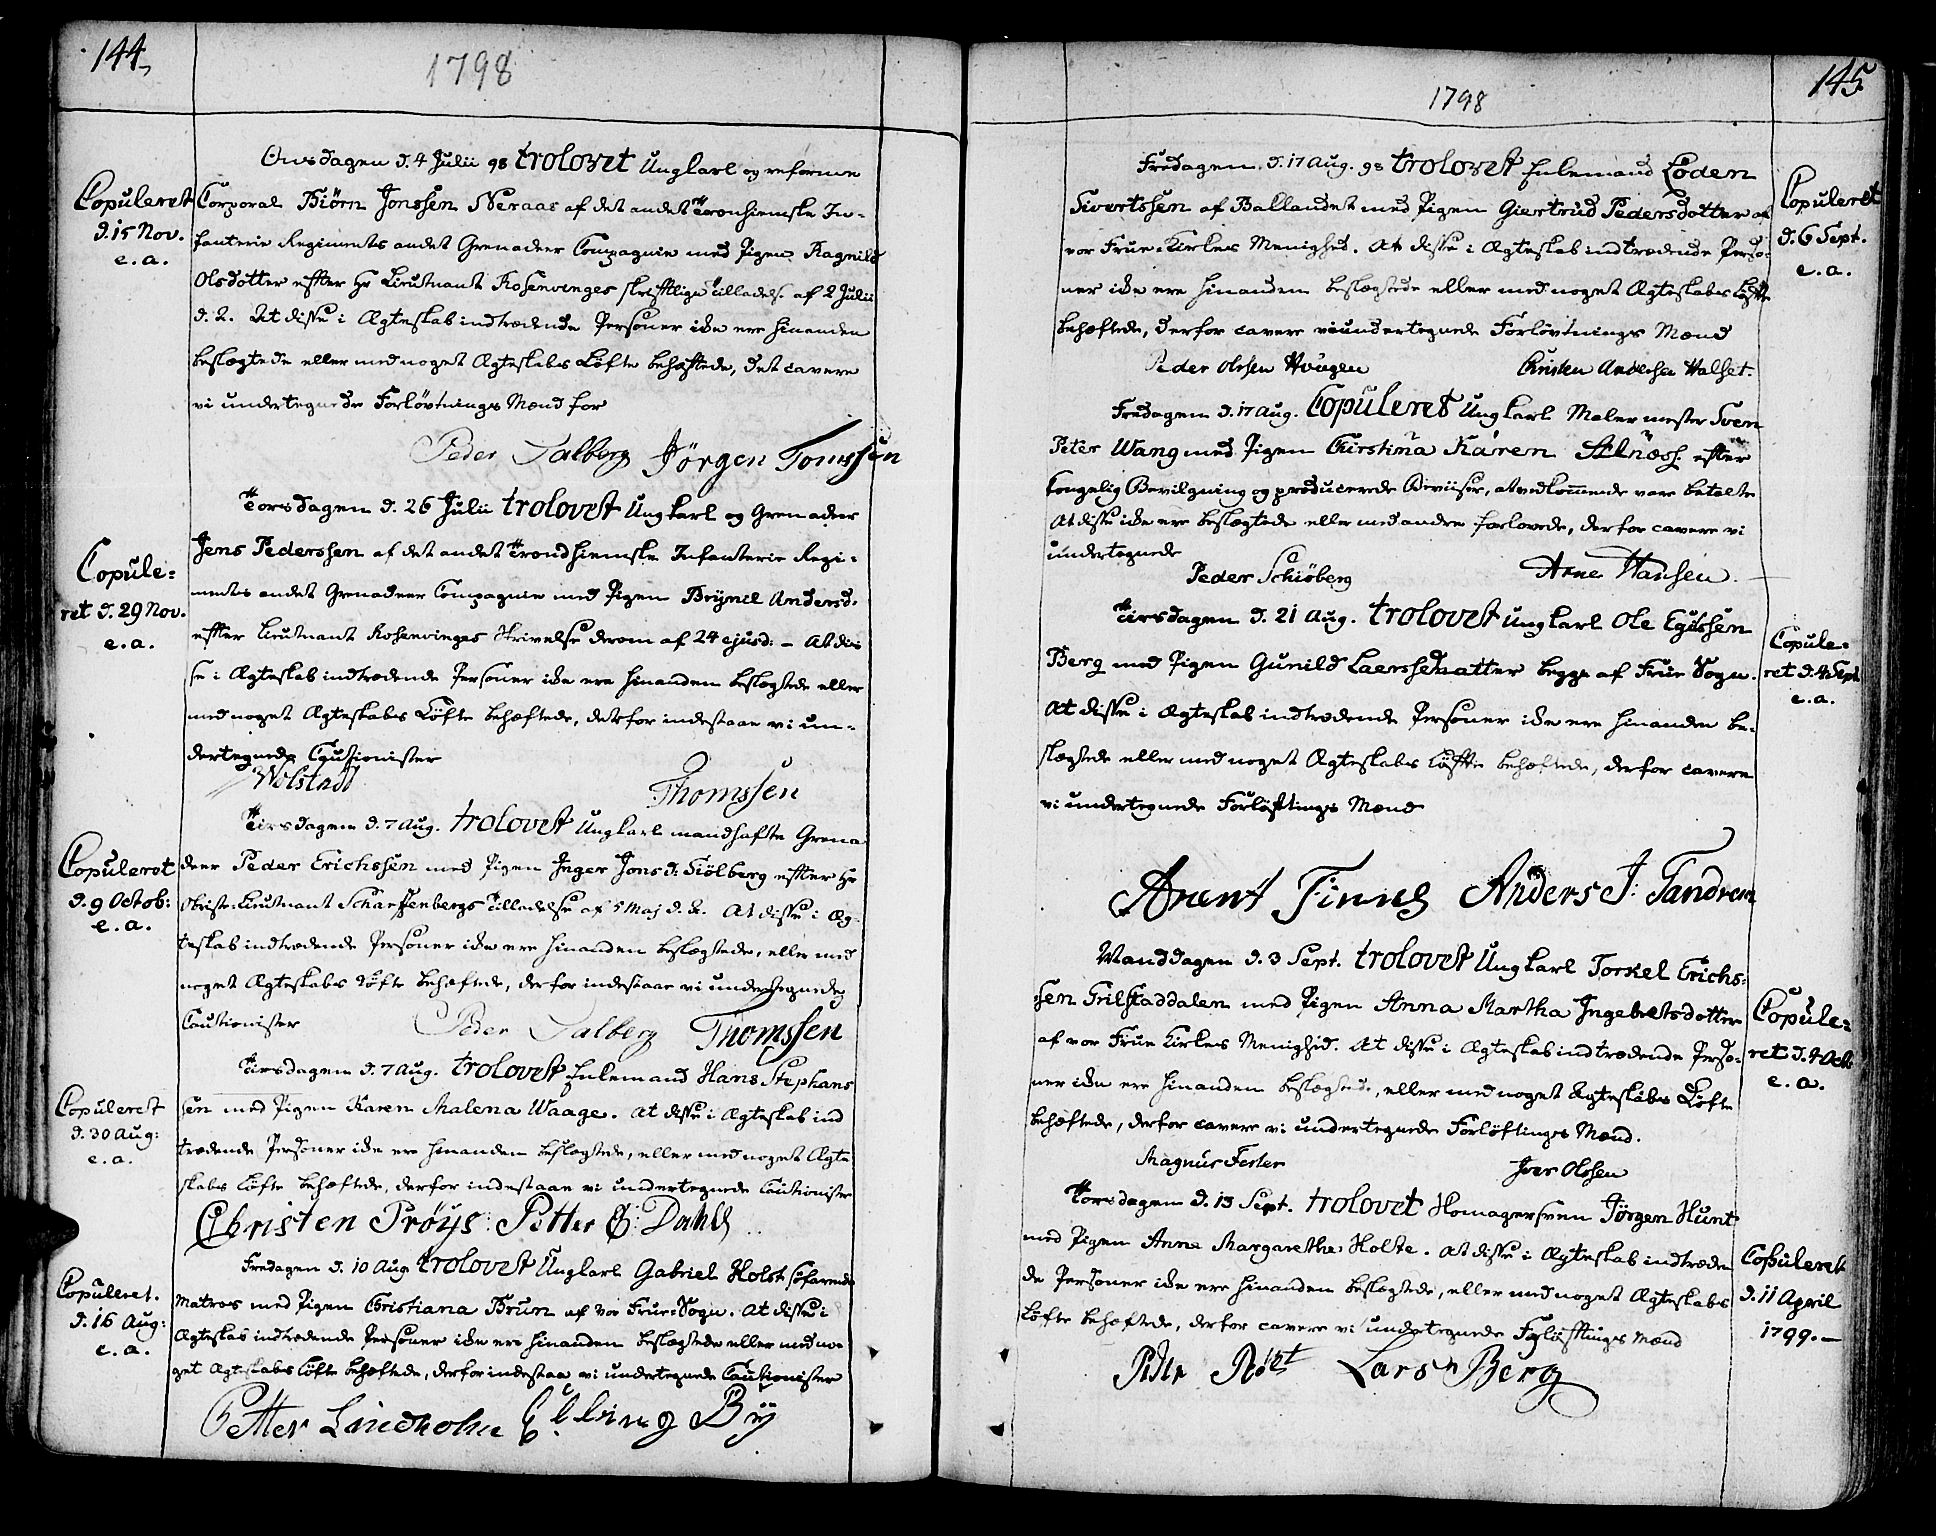 144
1798
Onsdagen d. 4 Julii 98 trolovet Ungkarl og reforme
Copuleret
d. 15 Nov.
e. a.
Corporal Biörn Jonssen Neraas af det andet Tronhiemske In-
fanterie Regiments andet Grenadeer Compagnie med Pigen Ragnild
Olsdotter efter Hr Lieutnant Rosenvinges skriftlige Tilladelse af 2 Julii
d. A. At disse i Ægteskab indtrædende Personer ikke ere hinanden
beslægtede eller med noget Ægteskabs Løfte behæftede, det cavere
vi undertegnede Forløvtnings Mænd for
Peder Salberg Jörgen Tomssen
Torsdagen d. 26 Julii trolovet Ungkarl og Grenadeer
Copule=
ret d. 29 Nov.
e. a.
Jens Pederssen af det andet Trondhiemske Infanterie Regi-
mentes andet Grenadeer Compagnie med Pigen Brynil Andersd.
efter Lieutnant Rosenvinges Skrivelse derom af 24 ejusd: - At dis
se i Ægteskab indtrædende Personer ikke ere hinanden beslægtede eller
med noget Ægteskabs Løfte behæftede, derfor indestaae vi un-
dertegnede Cautionister
Wolstad Thomssen
Tirsdagen d. 7 Aug. trolovet Ungkarl mandhafte Grena
Copuleret
d. 9 Octob:
e. a.
deer Peder Erichssen med Pigen Inger Jonsd: Fiölberg efter Hr
Obriste-Lieutnant Scharffenbergs Tilladelse af 5 Maj d. A. At disse i Æg-
teskab indtrædende Personer ikke ere hinanden beslægtede, eller med
noget Ægteskabs Løfte behæftede, derfor indestaae vi undertegnede
Cautionister
Peder Salberg Thomssen
Tirsdagen d. 7 Aug. trolovet Enkemand Hans Stephans
Copuleret
d. 30 Aug:
e. a.
sen med Pigen Karen Malena Waage. At disse i Ægteskab ind
trædende Personer ikke ere hinanden beslægtede, eller med noget Ægte
skabs Løfte behæftede, derfor indestaae vi undertegnede Cautionister
Christen Pröys: Petter E: Dahl
Fredagen d. 10 Aug trolovet Ungkarl Gabriel Holst søfarende
Copuleret.
d. 16 Aug:
e. a.
Matros med Pigen Christiana Brun af Vor Frue-Sogn. At disse i
Ægteskab indtrædende Personer ikke ere hinanden beslægtede eller med no-
get Ægteskabs Løfte behæftede, derfor indestaae vi undertegnede Cautionister
Petter Lindholm Elling By
145
1798
Fredagen d. 17 Aug. 98 trolovet Enkemand Loden
Copuleret
d. 6 Sept.
e. a.
Sivertssen af Ballandet med Pigen Giertrud Pedersdotter af
vor Frue-Kirkes Menighed. At disse i Ægteskab indtrædende Perso-
ner ikke ere hinanden beslægtede eller med noget Ægteskabs Løfte
behæftede, derfor cavere vi undertegnede Forløvtnings Mænd
Peder Olssen Hougen Christen Andersen Halset.
Fredagen d. 17 Aug. Copuleret Ungkarl Malermester Sven
Peter Wang med Pigen Christina Karen Alnæss. efter
kongelig Bevilgning og producerede Beviiser, at vedkommende vare betalte
At disse ikke ere beslægtede eller med andre forlovede, derfor cavere vi
undertegnede
Peder Schiöberg Arne Hansen.
Tirsdagen d. 21 Aug. trolovet Ungkarl Ole Egilssen
Copule=
ret d. 4 Sept
e. a.
Berg med Pigen Gunild Laerssedaatter begge af Frue Sogn.
At disse i Ægteskab indtrædende Personer ikke ere hinanden be-
slægtede eller med noget Ægteskabs Løfte behæftede, derfor cavere
vi undertegnede Forløftings Mænd
Arent Finne Anders J: Tandrem
Mandagen d. 3 Sept. trolovet Ungkarl Torkel Erichs-
Copule=
ret d. 4 Octb
e. a.
sen Trilstaddalen med Pigen Anna Martha Ingebretsdotter
af vor Frue Kirkes Menighed. At disse i Ægteskab indtrædende Perso-
ner ikke ere hinanden beslægtede, eller med noget Ægteskabs Løfte
behæftede, derfor cavere vi undertegnede Forløftings Mænd.
Magnus Fester Iver Olssen
Torsdagen d. 13 Sept. trolovet Homagersven Jörgen Hunt
Copuleret
d. 11 April
1799. -
med Pigen Anne Margarethe Holte. At disse i Ægteskab indtræden
de Personer ikke ere hinanden beslægtede, eller med noget Ægteskabs
Løfte behæftede, derfor cavere vi undertegnede Forløftings Mænd
Petter Lars Berg